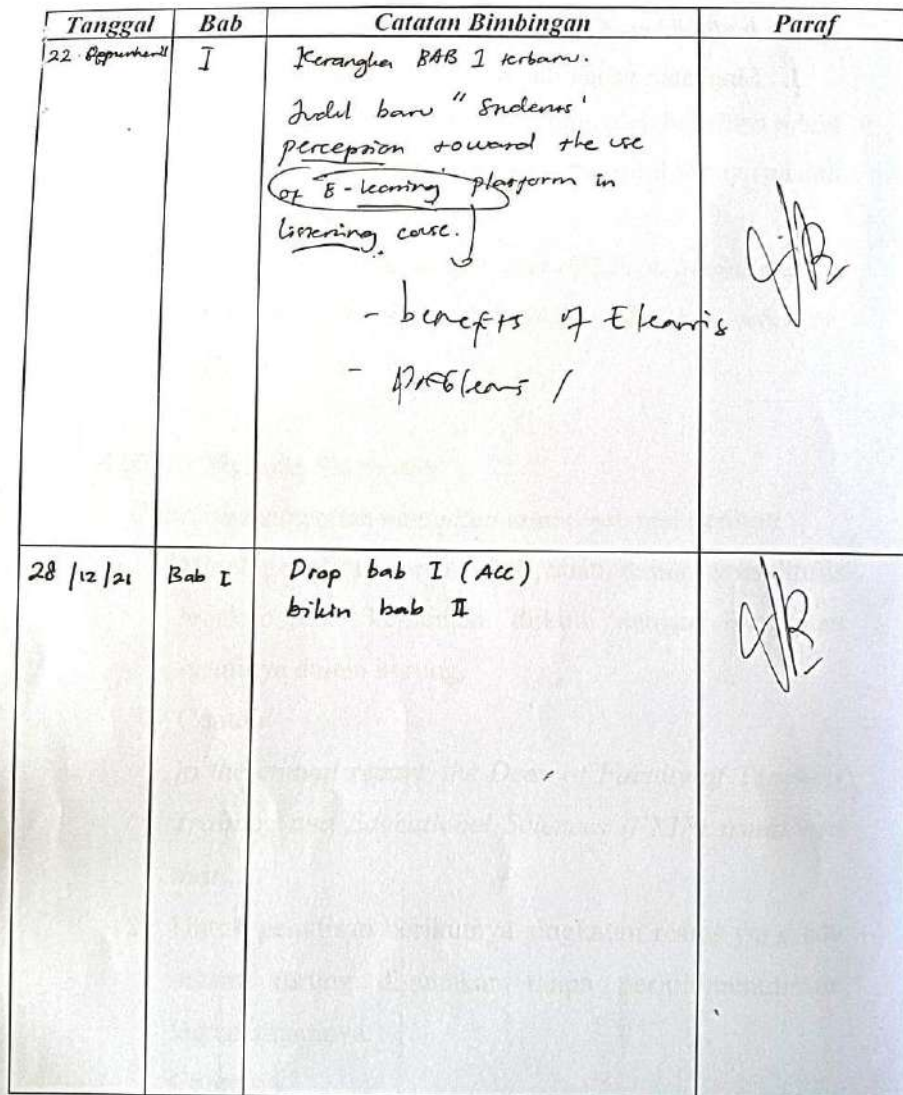 Tanggal Bab Catatan Bimbingan Paraf
22 I Kerangka BAB I terbaru.
Judul baru "Students'
perception toward the use
of E-learning platform in
listening course.
- benefits of E learning
- problems /
28/12/21 Bab I Drop bab I (ACC)
bikin bab II